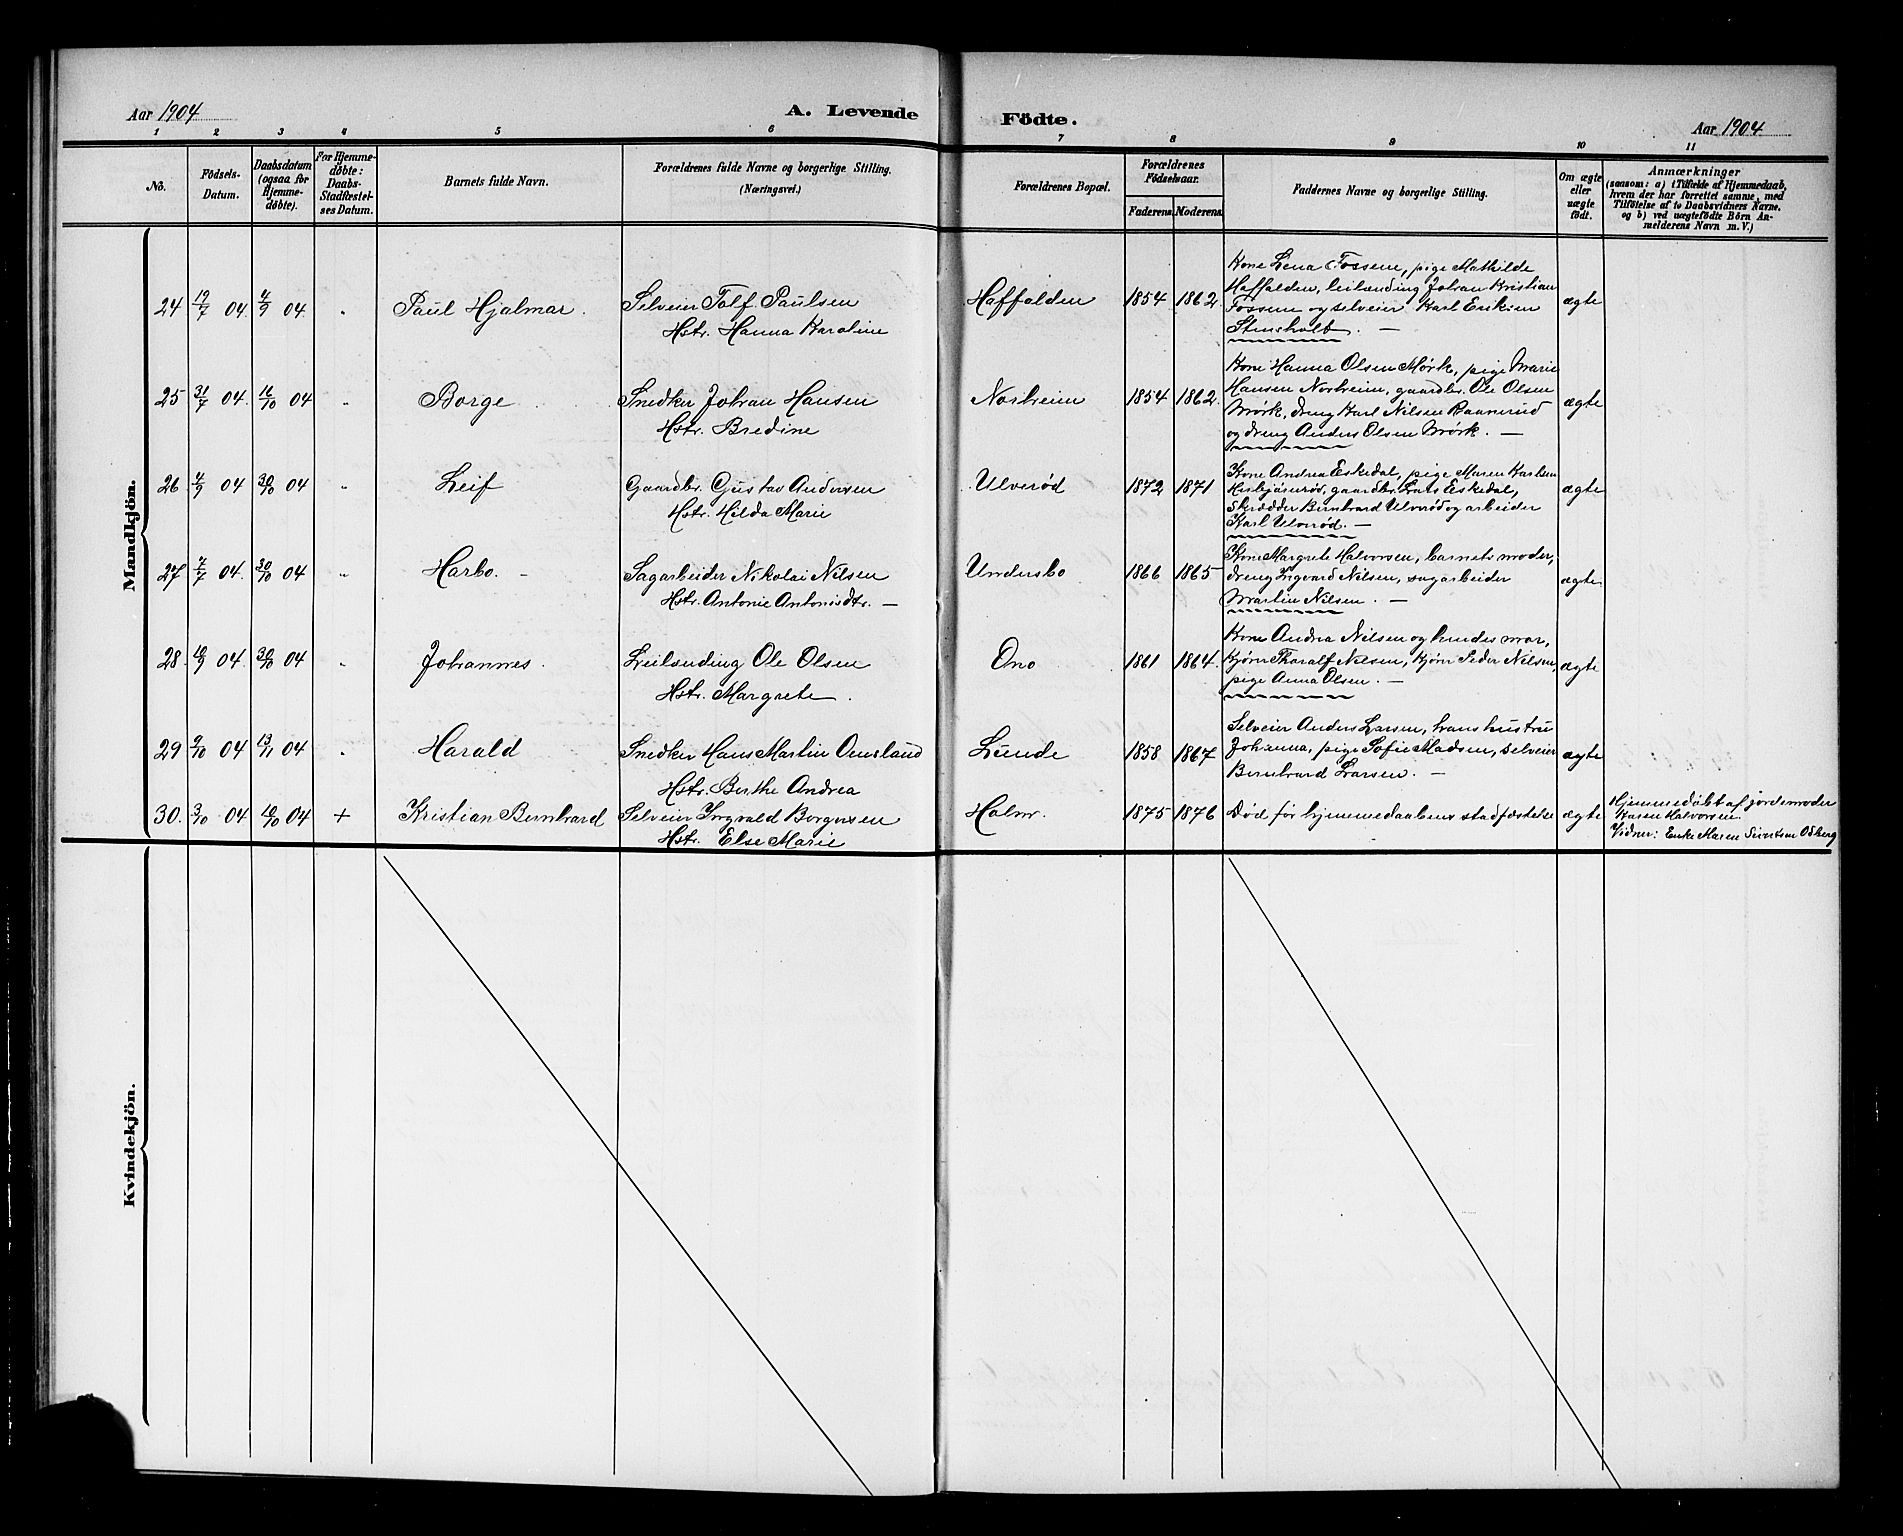 Aar 1904
A. Levende Födte.
Aar 1904
1 2 3 4 5 6 7 8 9 10 11
No.
Födsels-
Datum.
Daabsdatum
(ogsaa for
Hjemme-
döbte).
For Hjemme-
döbte:
Daabs-
Stadfæstel-
ses Datum.
Barnets fulde Navn.
Forældrenes fulde Navne og borgerlige Stilling.
(Næringsvei.)
Forældrenes Bopæl.
Forældrenes
Födselsaar.
Faderens. Moderens.
Faddernes Navne og borgerlige Stilling.
Om ægte
eller
uægte
födt.
Anmærkninger
(saasom: a) i Tilfælde af Hjemmedaab,
hvem der har forrettet samme, med
Tilföielse af to Daabsvidners Navne.
og b) ved uægtefödte Börn An-
melderens Navn m. V.)
Mandkjön.
24 19/7 04 4/9 04 " Paul Hjalmar. Selveier Tolf Paulsen Haffalden 1854 1862. ægte
Hstr. Hanna Karoline
Kone Lena Fossum, pige Mathilde
Haffalden, leilænding Johan Kristian
Fossum og selveier Karl Eriksen
Stensholt. —
25 31/7 04. 16/10 04 " Borge Snedker Johan Hansen Norheim 1854 1862. ægte
Hstr. Bredine
Kone Hanna Olsen Mørk, pige Marie
Hansen Norheim, gaardbr. Ole Olsen
Mørk, dreng Karl Nilsen Raanerud
og dreng Anders Olsen Mørk. —
26 4/9 04 30/10 04 " Leif Gaardbr. Gustav Andersen Ulverød 1872 1871 ægte
Hstr. Hilda Marie
Kone Andrea Eskedal, pige Maren Karlsen
gaardbr. Lars Eskedal,
Skrædder Bernhard Ulverød og arbeider
Karl Ulverød. —
27 7/7 04. 30/10 04 " Harbo. - Sagarbeider Nikolai Nilsen Undersbo 1866 1865 ægte
Hstr. Antonie Antonisdtr. —
Kone Margrete Halvorsen, barnets moder,
dreng Ingvard Nilsen, sagarbeider
Martin Nilsen. —
28. 10/9 04. 30/10 04 " Johannes. Leilænding Ole Olsen Ono 1861 1864. ægte
Hstr. Margrete.
Kone Andrea Nilsen og hendes mor,
Kjørn Tharalf Nilsen, Kjørn Peder Nilsen,
pige Anna Olsen. —
29 9/10 04 13/11 04 " Harald Snedker Hans Martin Omsland Lunde 1858 1867 ægte
Hstr. Berthe Andrea
Selveier Anders Larsen, hans hustru
Johanna, pige Sofie Madsen, selveier
Bernhard Larsen. —
30. 3/10 04 10/10 04 + Kristian Bernhard Selveier Ingvald Borgersen Holmr. 1875 1876 Død før hjemmedaabens stadfæstelse ægte
Hstr. Else Marie
Hjemmedøbt af jordemoder
Karen Halvorsen.
Vidner: Enke Maren Sivertsen Odberg
Kvindekjön.